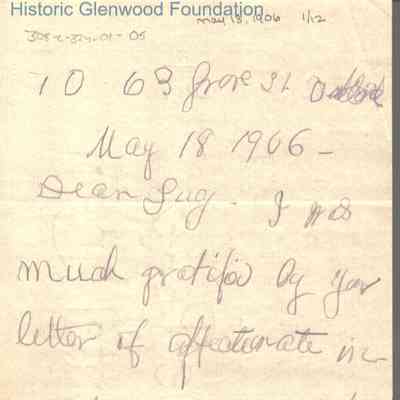 Historic Glenwood Foundation
may 18, 1906 1/12
10 63 Grove St
May 18 1906 -
Dear Lug. I was
much gratified by your
letter of affectionate in